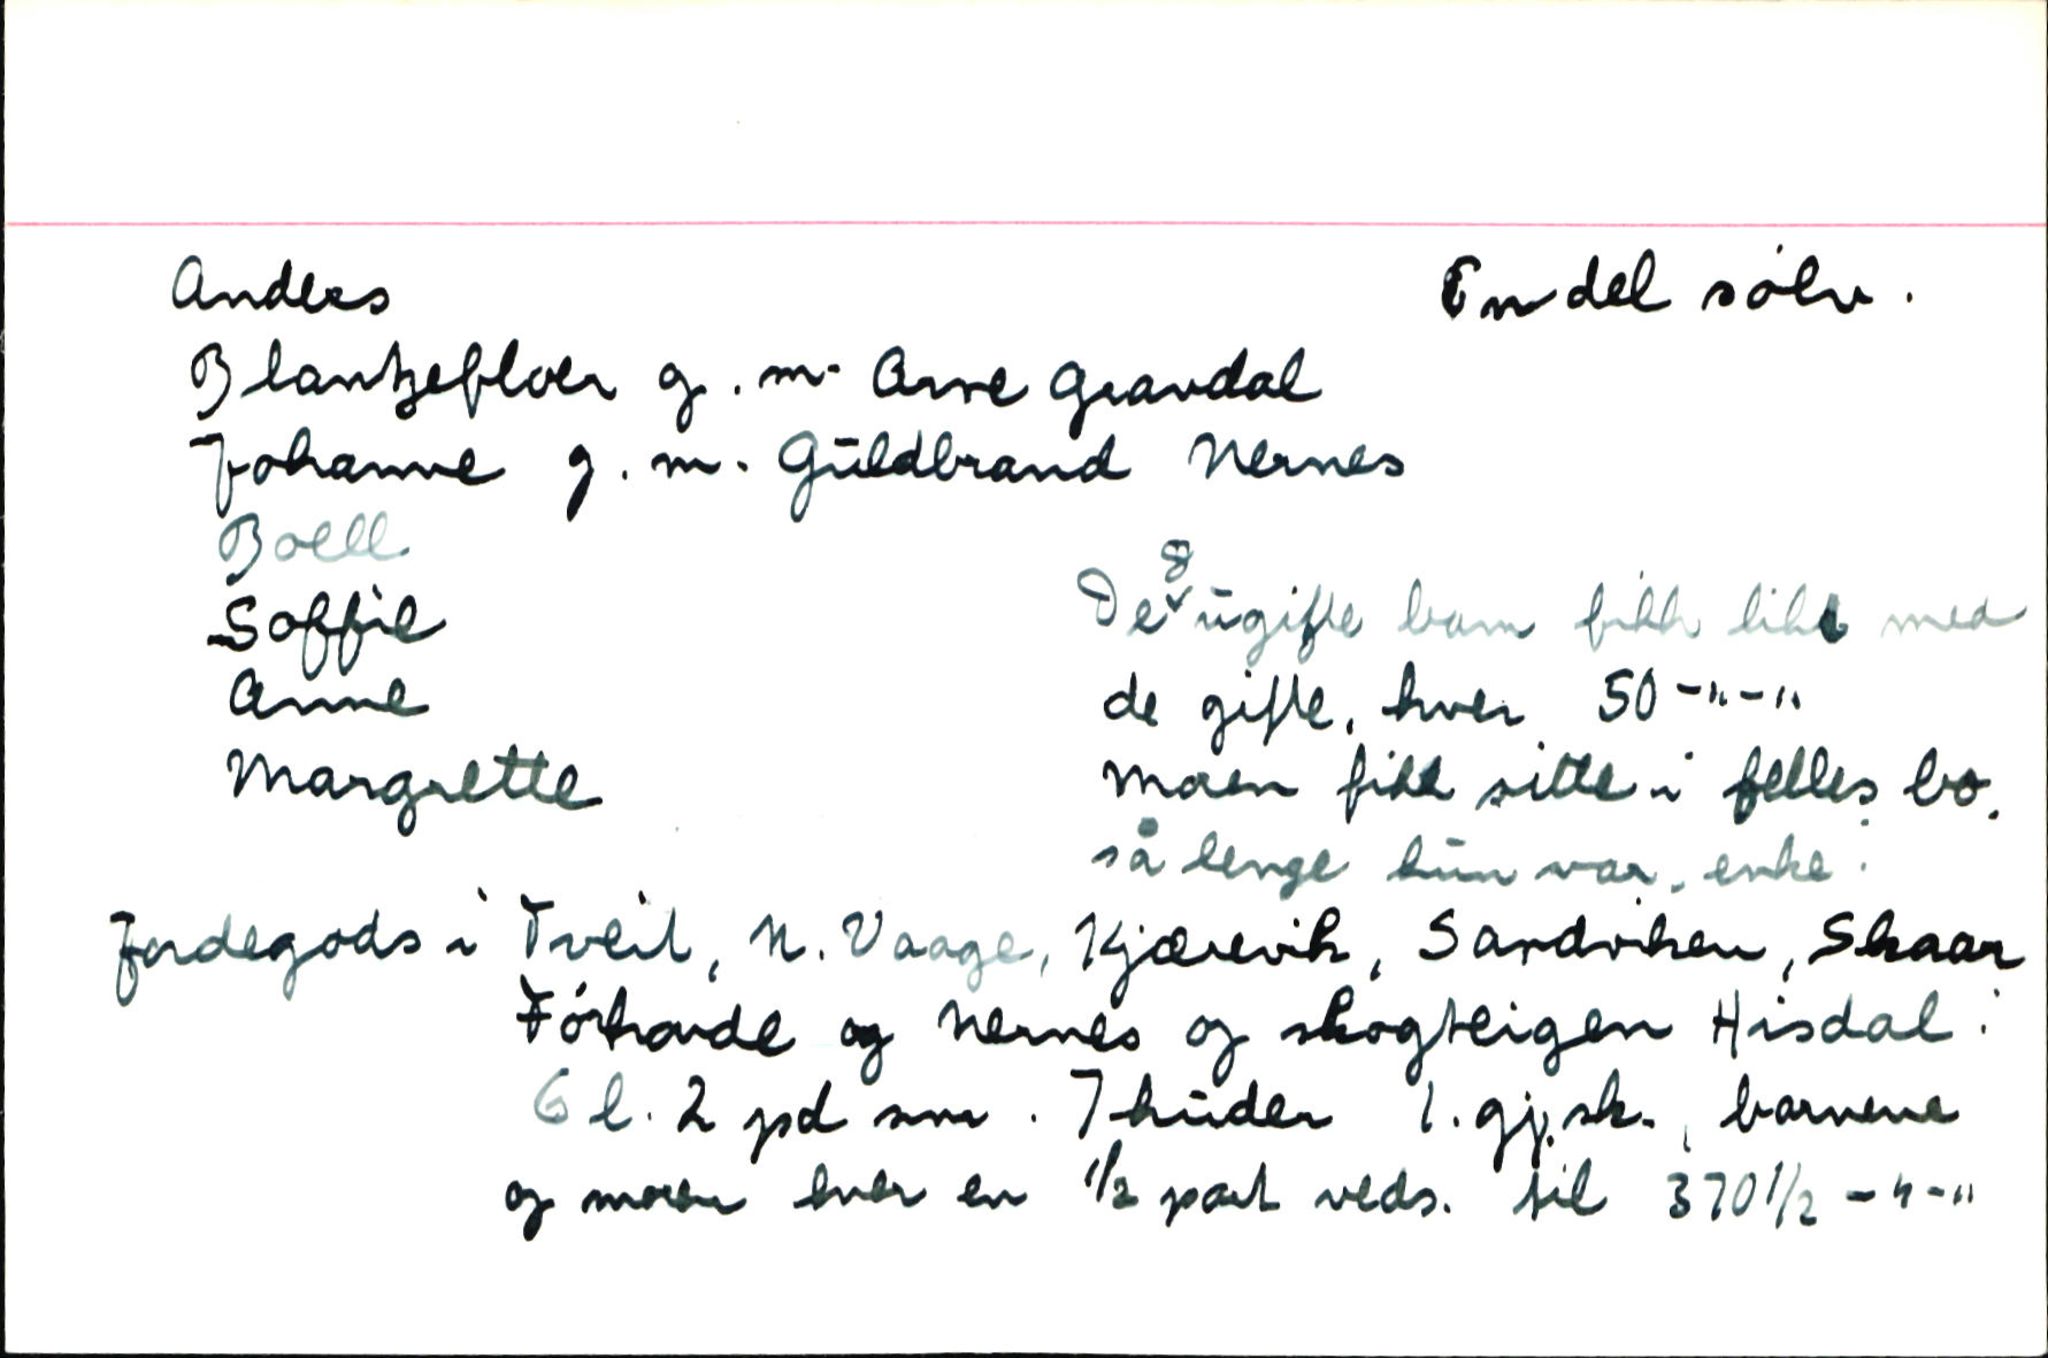 Anders En del sølv.
Blantzefloer g. m. Arne Gravdal
Johanne g. m. Gūldbrand Nernes
Boell
Soffie De 8 ūgifte barn fikk likt med
Anne de gifte, hver 50 -"-"
Margrette Moren fikk sitte i felles bo.
så lenge hūn var enke.
Jordegods i Tveit, N. Vaage, Kjærevik, Sandviken, Skaar
og Nernes og skogteigen Hisdal:
6 l. 2 pd sm. 7 hūder 1. gj.sk., barnene
og moren hver en 1/2 part veds. til 370 1/2 -"-"